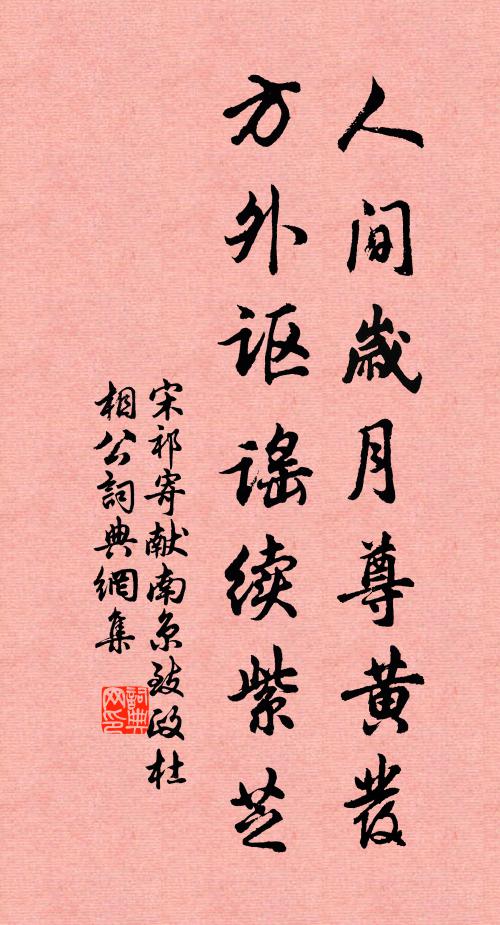 人间歲月尊黄发
方外讴謡续紫芝
宋祁寄献南京致政杜
相公詞典網集
詞典
网印